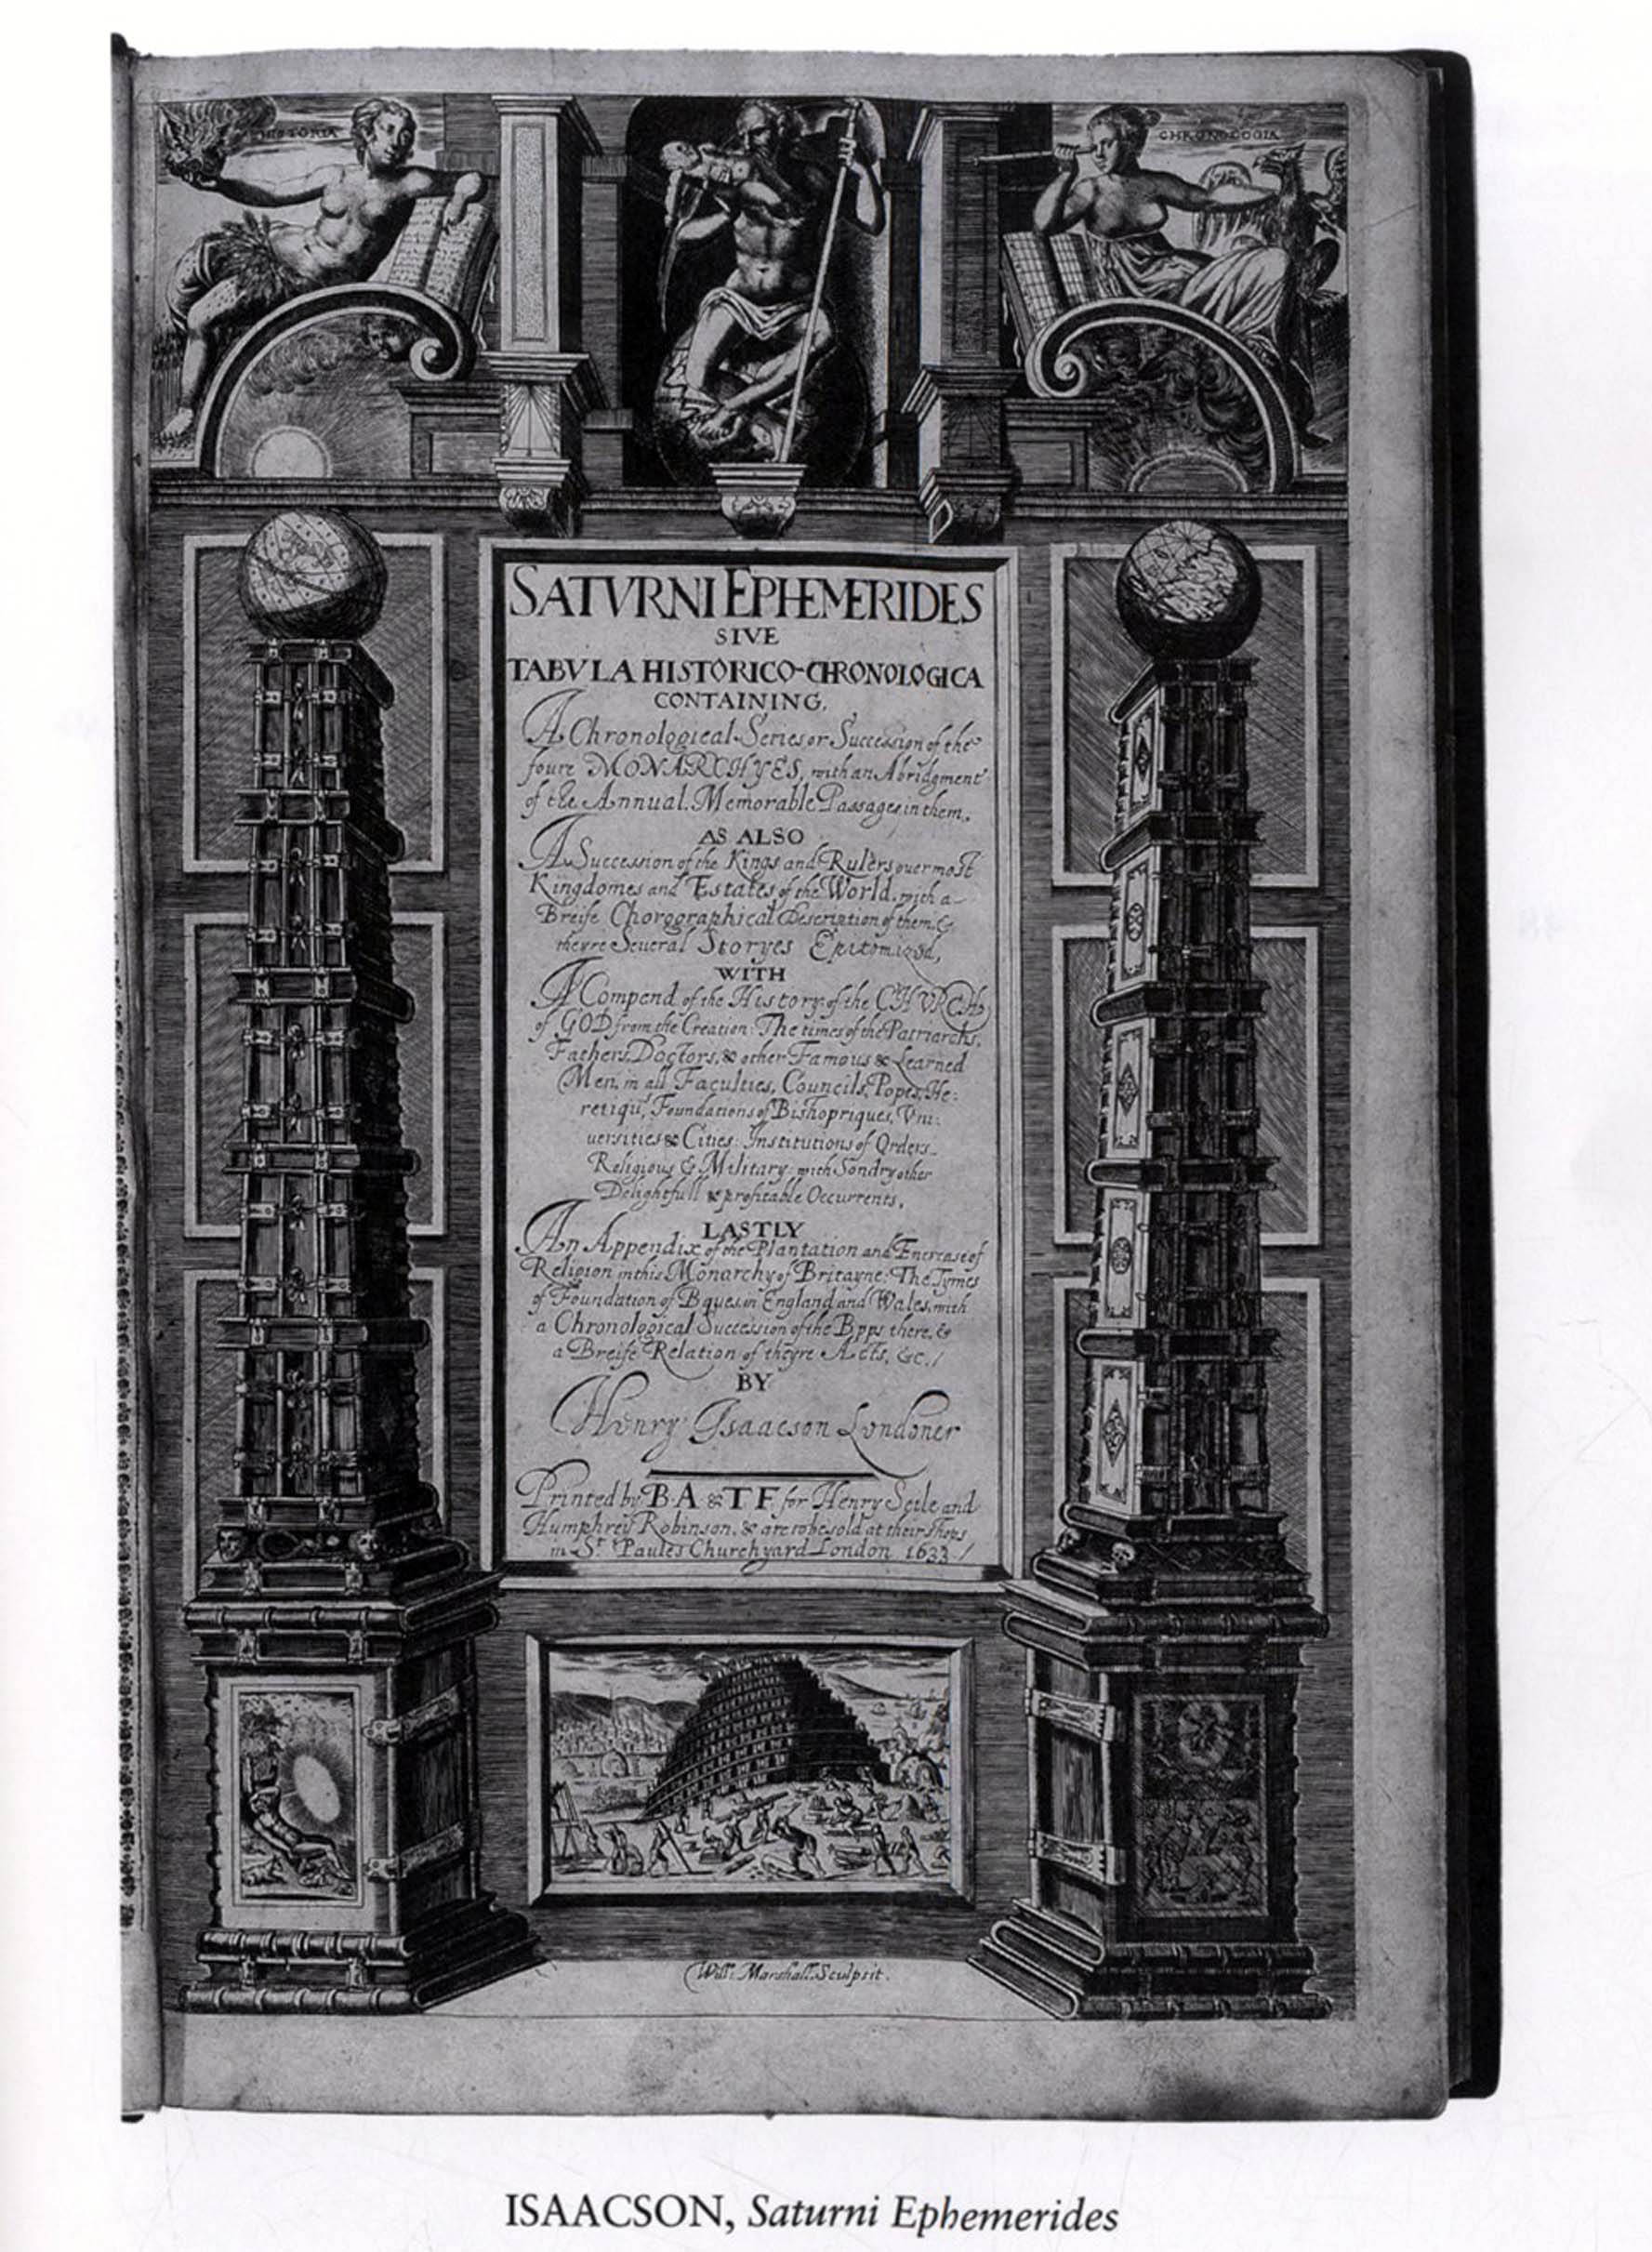 HISTORIA
CHRONOLOGIA
SATVRNI EPHEMERIDES
SIVE
TABVLA HISTORICO-CHRONOLOGICA
CONTAINING,
A Chronological Series or Succession of the
foure MONARCHYES, with an Abridgment
of the Annual Memorable Passages in them,
AS ALSO
A Succession of the Kings and Rulers over most
Kingdomes and Estates of the World, with a
Breife Chorographical Description of them, &
theyre Seueral Storyes Epitomized,
WITH
A Compend of the History of the CHVRCH
of GOD from the Creation: The times of the Patriarchs,
Fathers, Doctors, & other Famous & Learned
Men, in all Faculties, Councils, Popes, He:
retiqu, Foundations of Bishopriques, Vni:
uersities & Cities: Institutions of Orders
Religious & Military: with Sondry other
Delightfull & profitable Occurrents,
LASTLY
An Appendix of the Plantation and Encrease of
Religion in this Monarchy of Britayne: The Tymes
of Foundation of Bques in England and Wales, with
a Chronological Succession of the Bpps there, &
a Breife Relation of theyre Acts, &c. /
BY
Henry Isaacson Londoner
Printed by B·A & T F for Henry Seile and
Humphrey Robinson, & are to be sold at their Shops
in St. Paules Churchyard London 1633 /
Will: Marshall. Sculpsit.
ISAACSON, Saturni Ephemerides